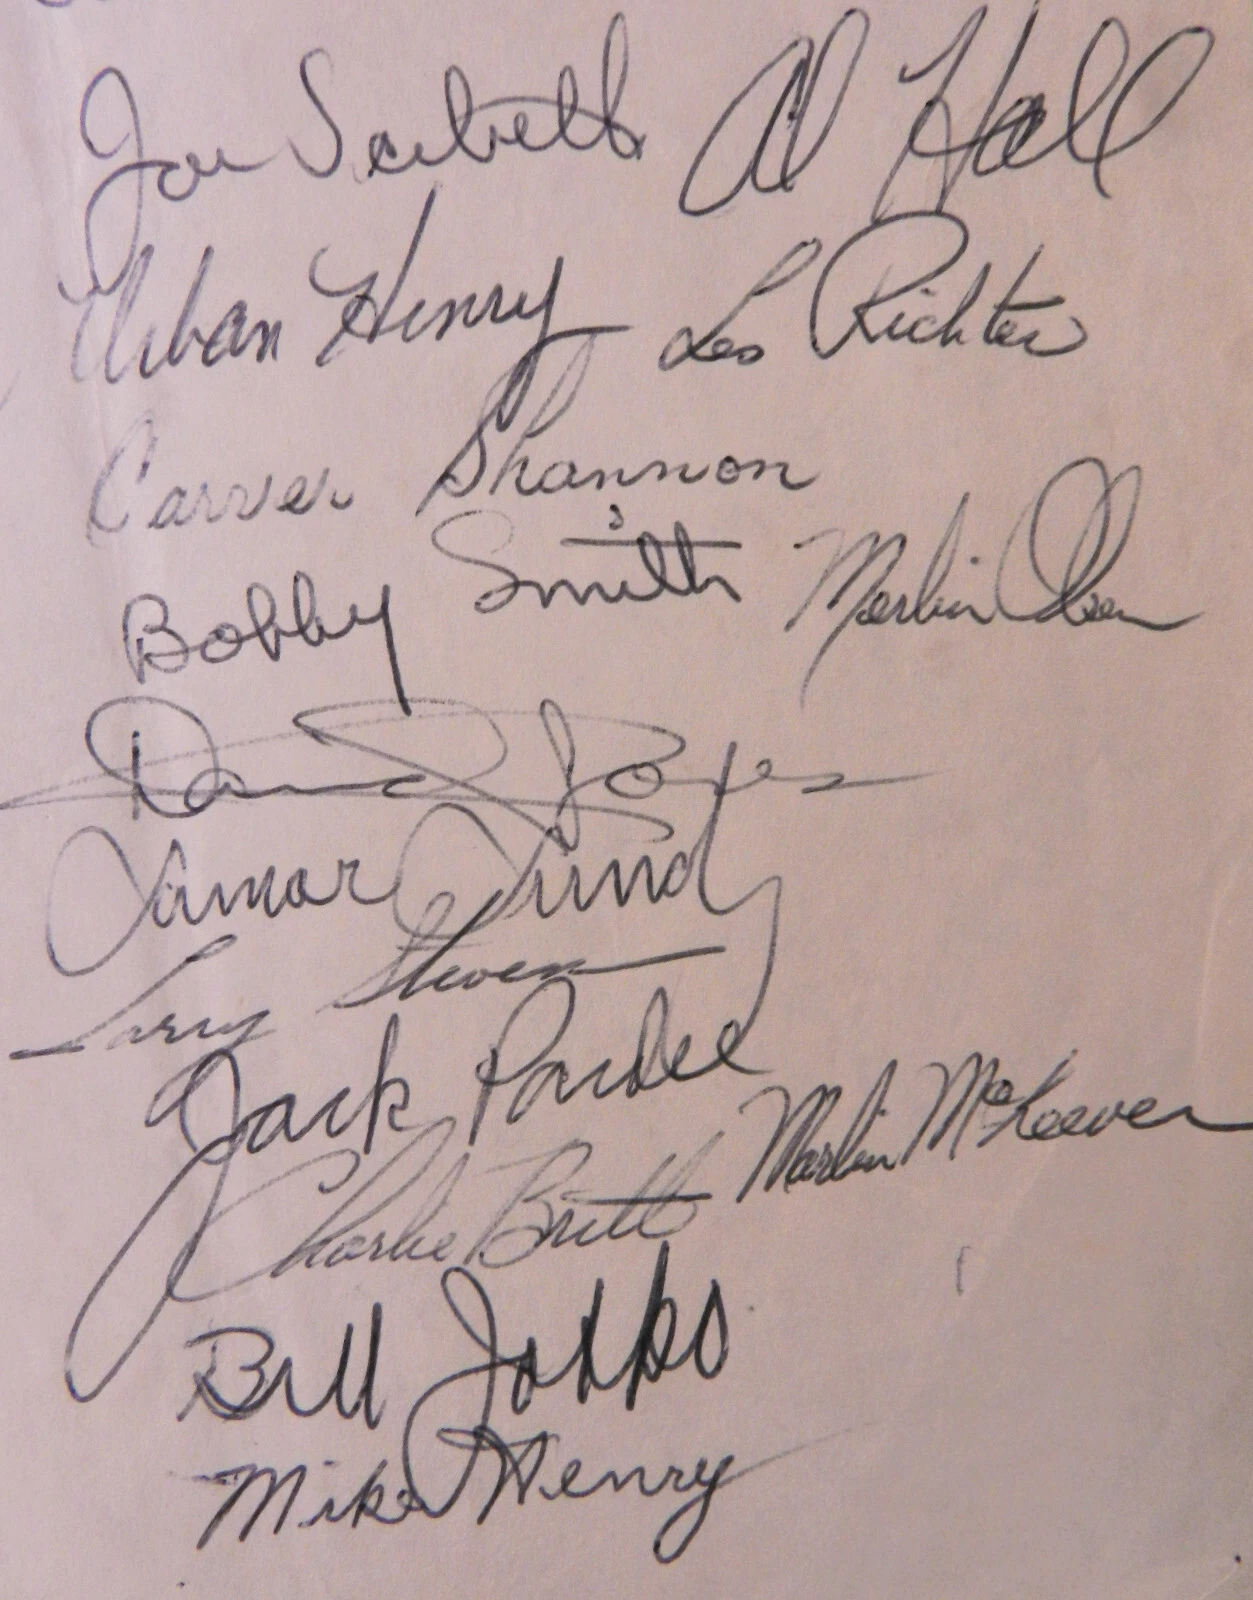 Joe Scibelli Al Hall
Urban Henry Les Richter
Carver Shannon
Bobby Smith Merlin Olsen
David Jones
Lamar Lundy
Larry Stevens
Jack Pardee
Charlie Britt Marlin McKeever
Bill Jobko
Mike Henry